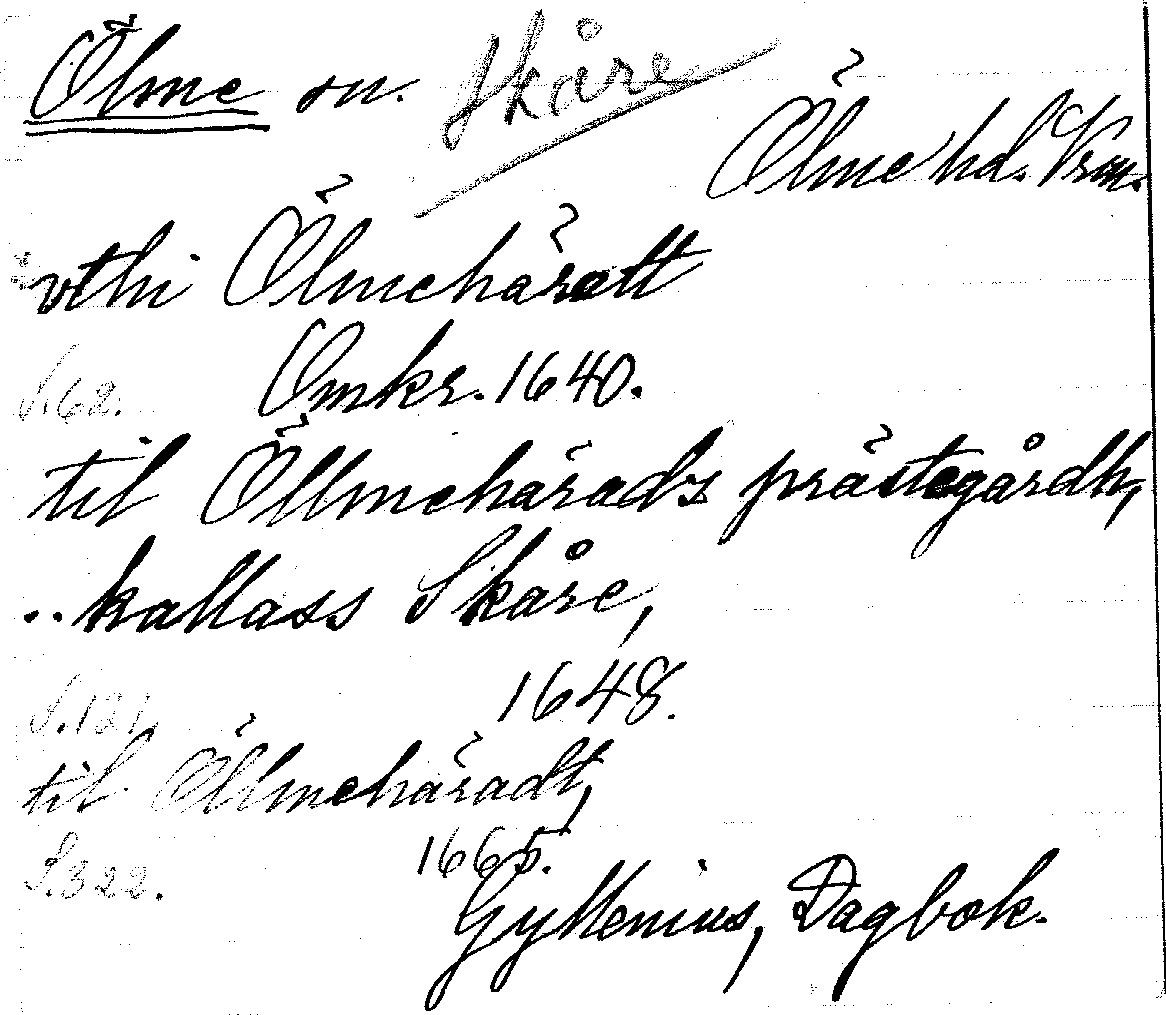 Ölme sn. Skåre
Ölme hd. Vrm.
vthi Ölmehäratt
S.62. Omkr. 1640.
til Öllmehärads prästegårdh,
.. kallass Skåre,
S.121. 1648.
til Öllmehäradt,
S.322. 1665.
Gyllenius, Dagbok.